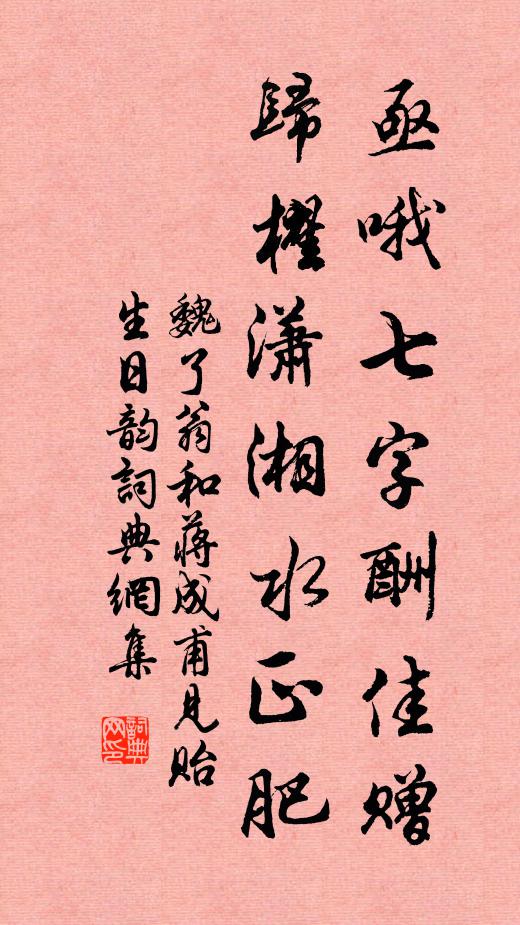 亟哦七字酬佳贈
歸櫂瀟湘水正肥
魏了翁和蔣成甫見貽
生日韵詞典網集
詞典網印